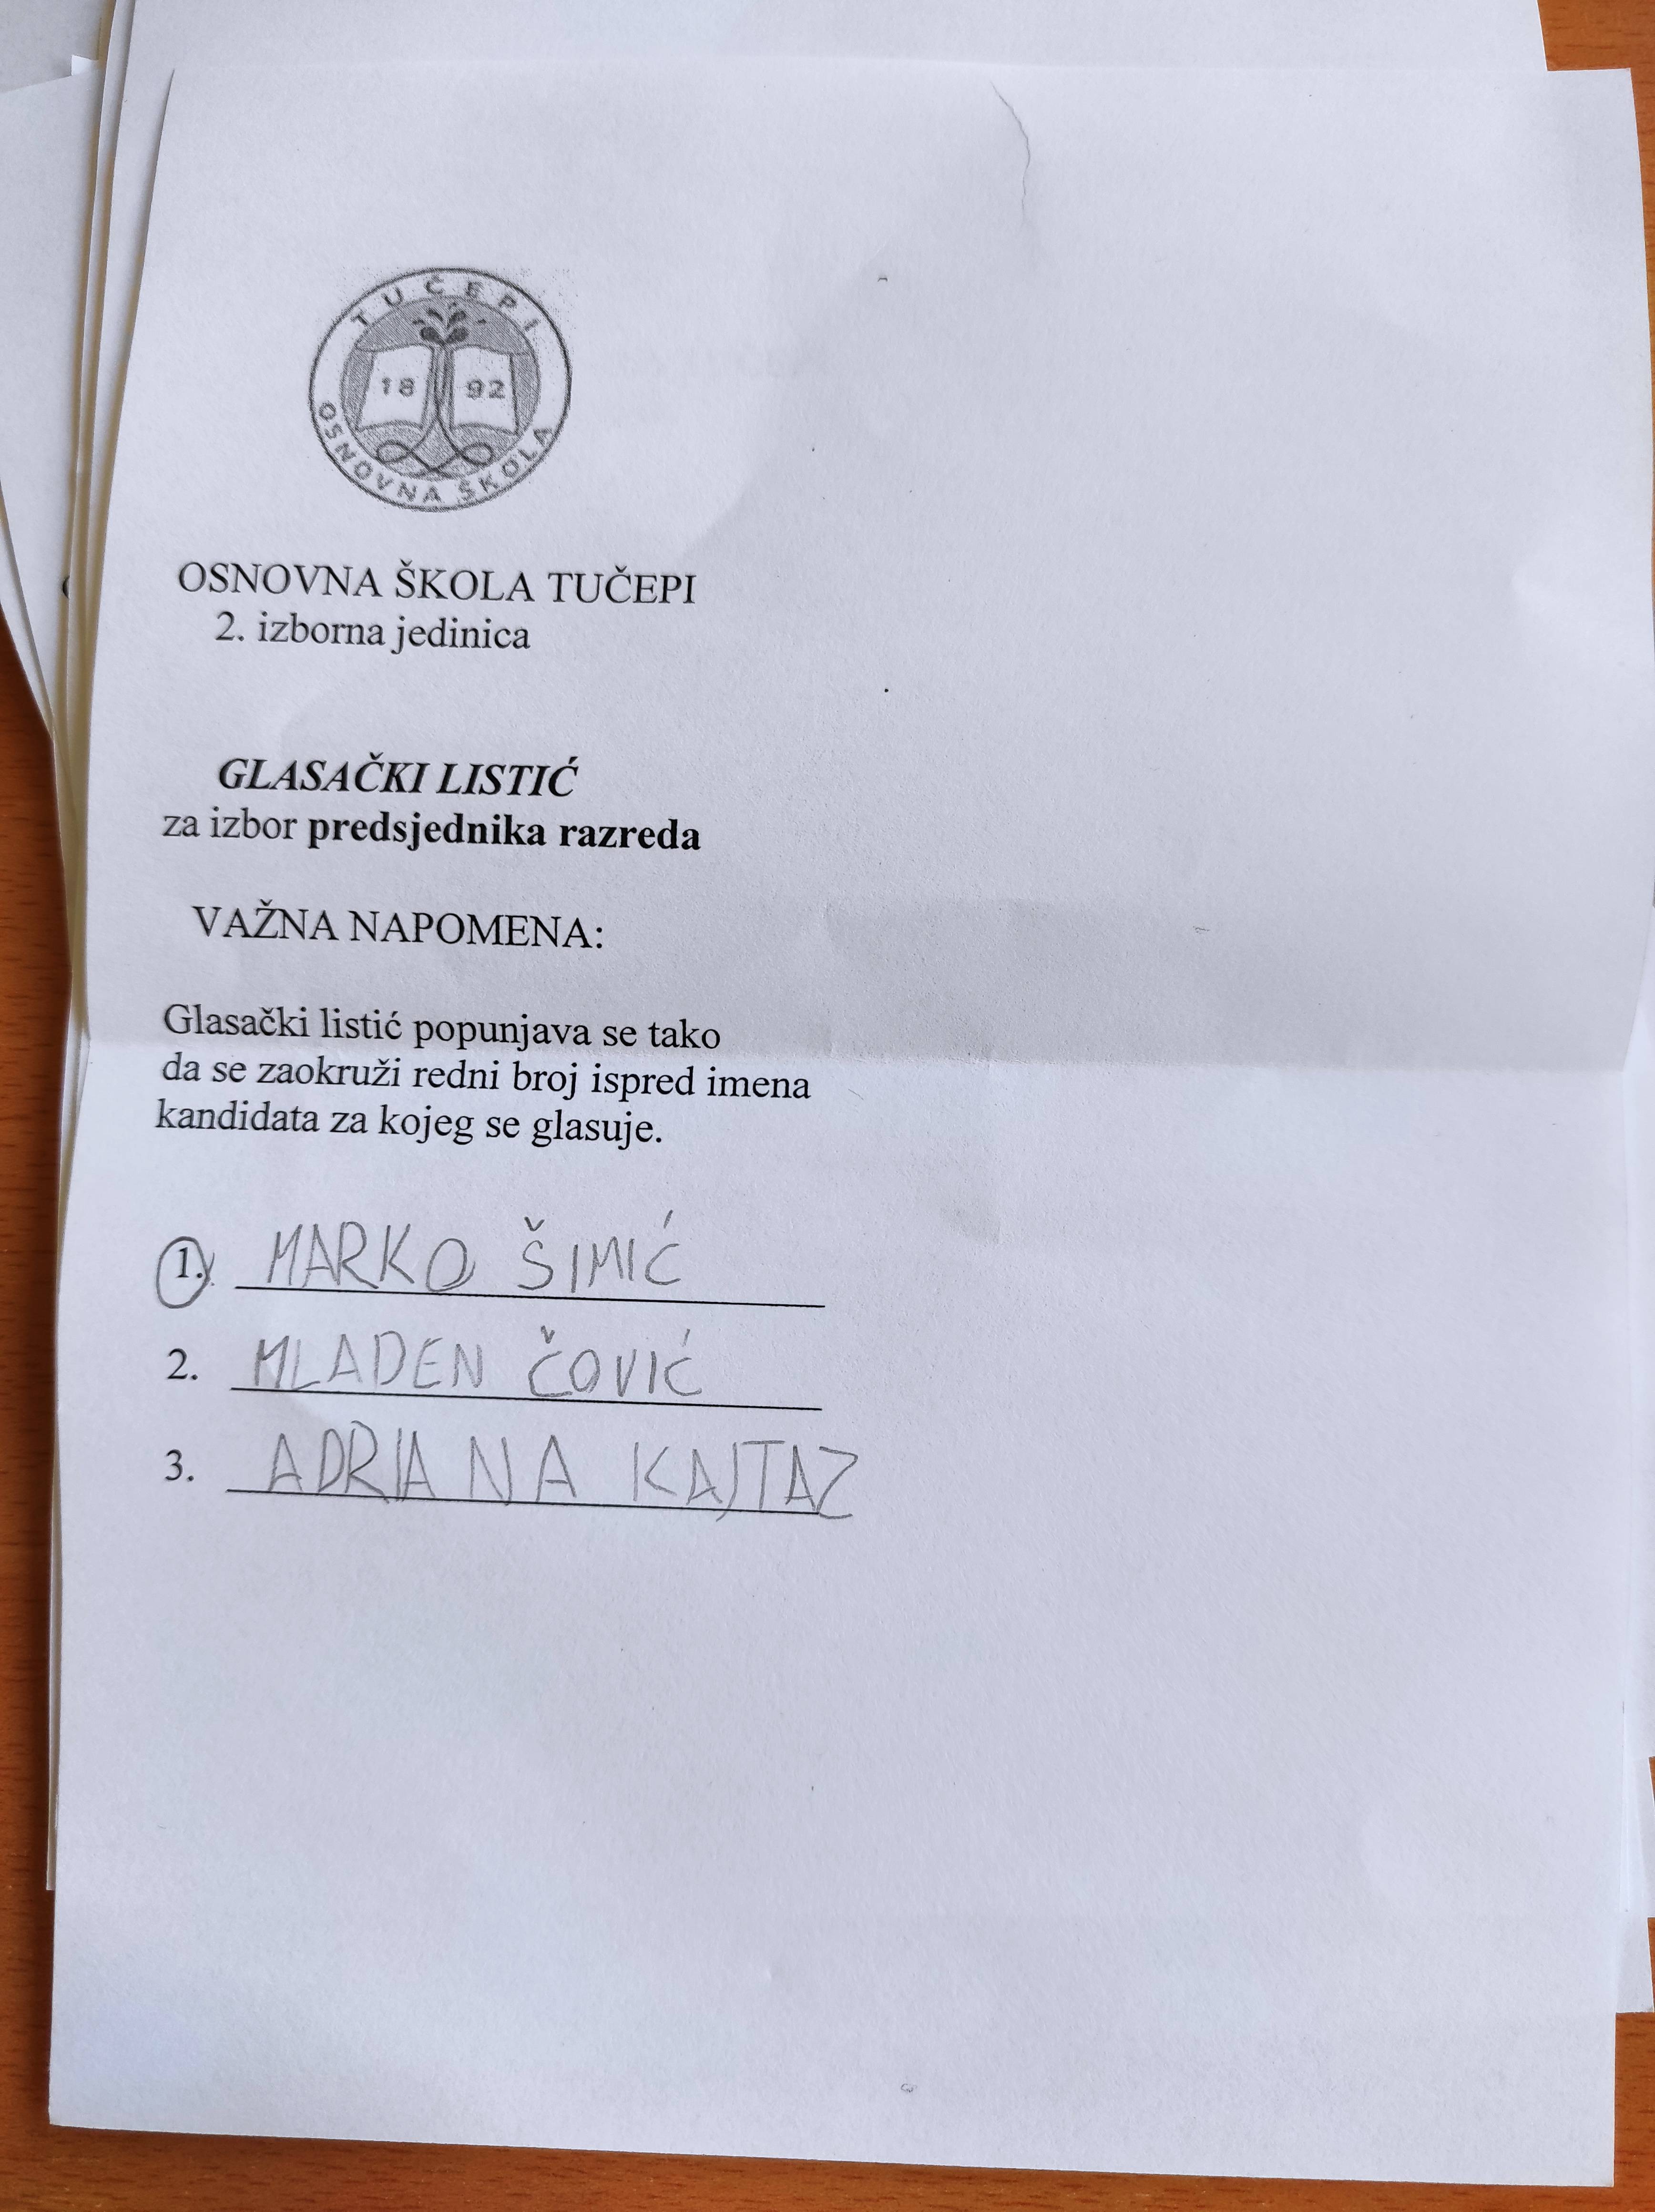 TUČEPI
18 92
OSNOVNA ŠKOLA
OSNOVNA ŠKOLA TUČEPI
2. izborna jedinica
GLASAČKI LISTIĆ
za izbor predsjednika razreda
VAŽNA NAPOMENA:
Glasački listić popunjava se tako
da se zaokruži redni broj ispred imena
kandidata za kojeg se glasuje.
1. MARKO ŠIMIĆ
2. MLADEN ČOVIĆ
3. ADRIANA KAJTAZ